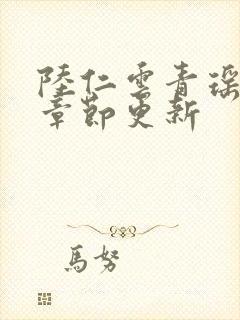 陸仁雲青瑶
章節更新
馬努